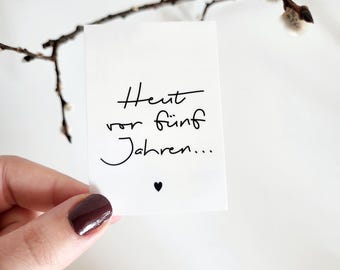 Heut
vor fünf
Jahren...